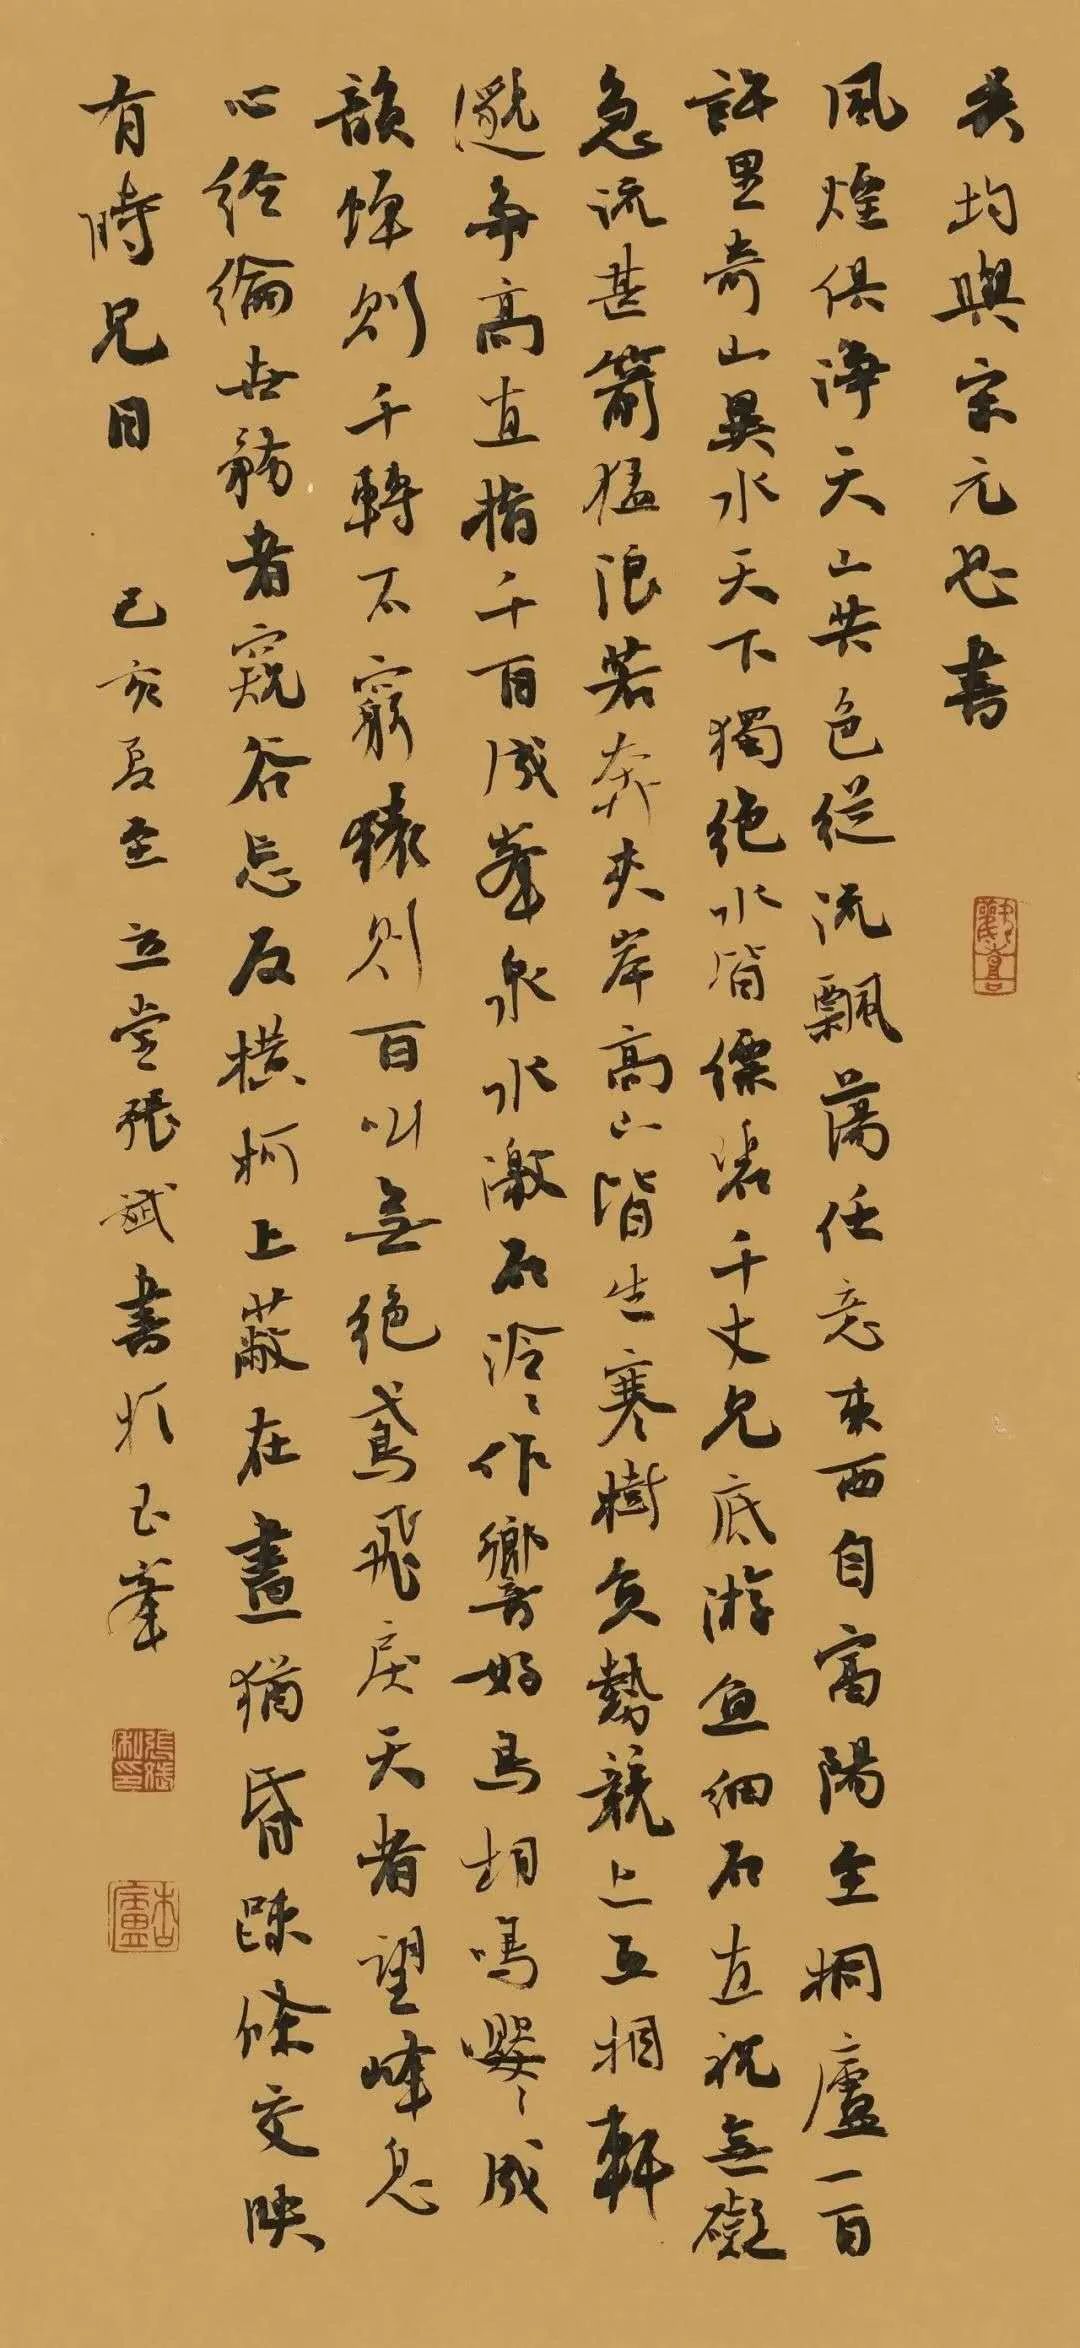 吳均與宋元思書
風煙俱淨天山共色從流飄蕩任意東西自富陽至桐廬一百
許里奇山異水天下獨絕水皆縹碧千丈見底游魚細石直視無礙
急流甚箭猛浪若奔夾岸高山皆生寒樹負勢競上互相軒
邈爭高直指千百成峯泉水激石泠泠作響好鳥相鳴嚶嚶成
韻蟬則千轉不窮猿則百叫無絕鳶飛戾天者望峰息
心經綸世務者窺谷忘反橫柯上蔽在晝猶昏疎條交映
有時見日
己亥夏至立堂張斌書於玉峯
張斌私印